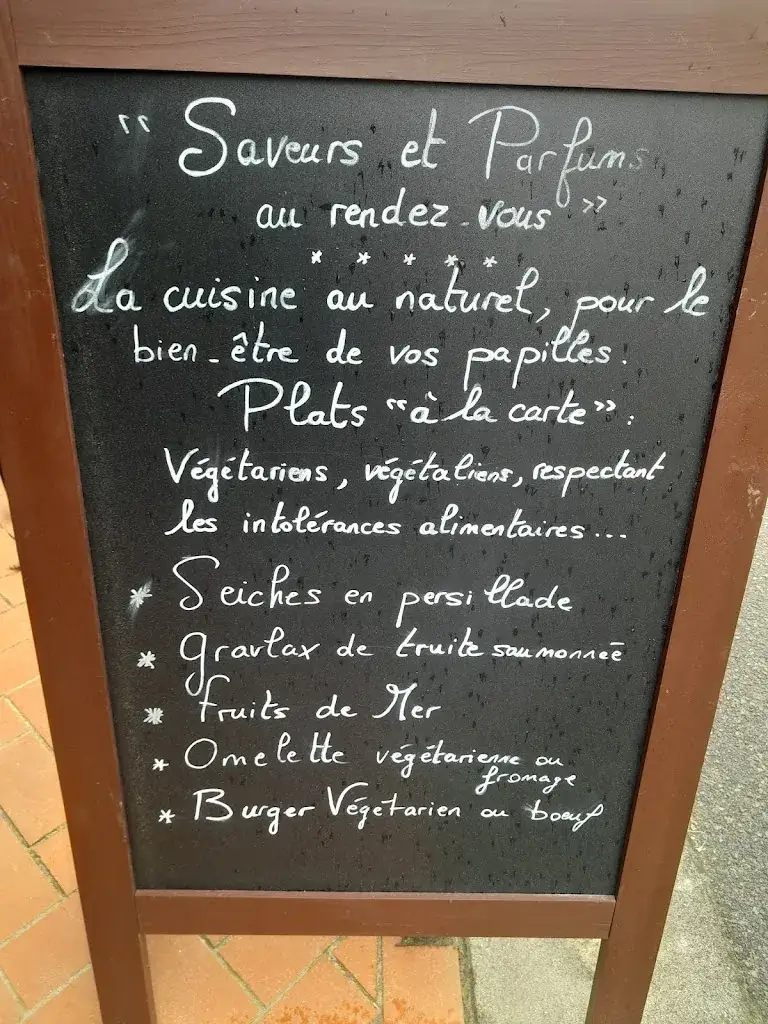 " Saveurs et Parfums
au rendez-vous "
* * * * *
La cuisine au naturel, pour le
bien-être de vos papilles.
Plats "à la carte" :
Végétariens, végétaliens, respectant
les intolérances alimentaires...
* Seiches en persillade
* Gravlax de truite saumonnée
* Fruits de Mer
* Omelette végétarienne ou
fromage
* Burger Végétarien ou boeuf